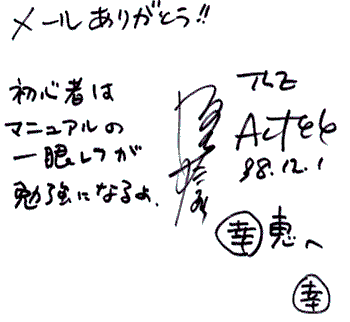 メールありがとう!!
初心者は
マニュアルの
一眼レフが
勉強になるよ.
98.12.1
幸恵へ
幸